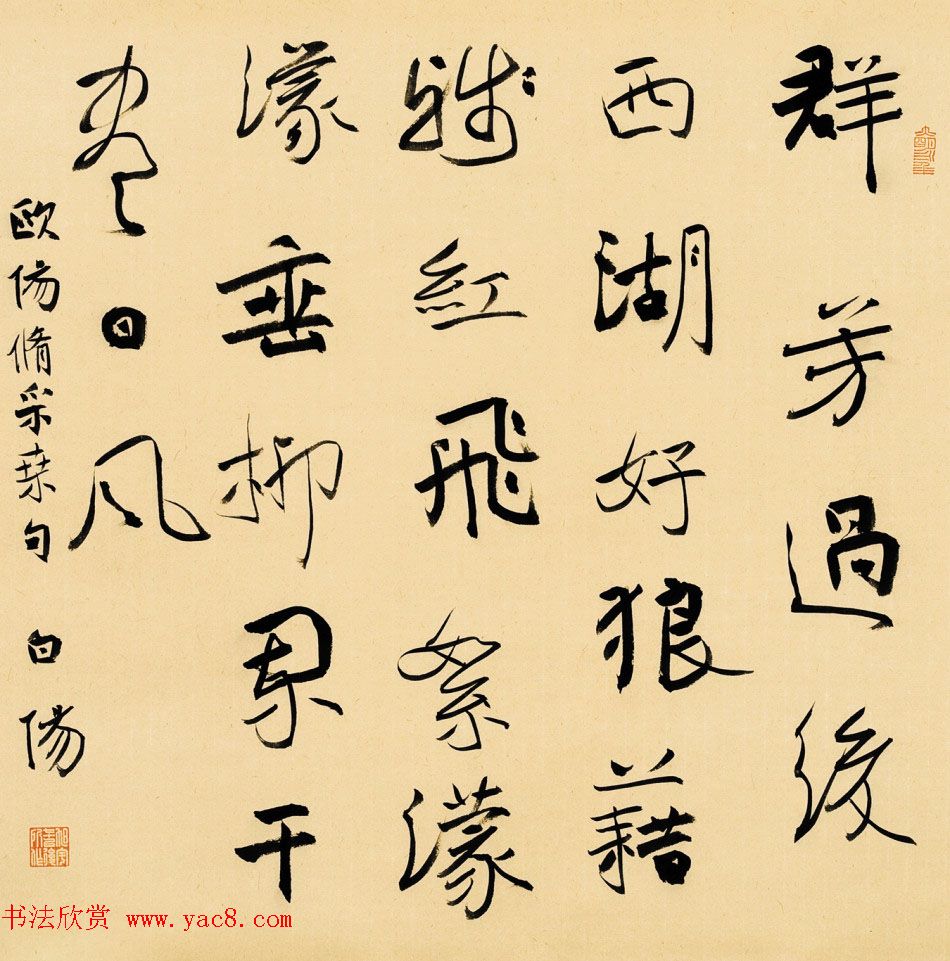 群芳過後
西湖好狼藉
殘紅飛絮濛
濛垂柳闌干
盡日風
欧陽脩采桒句 白陽
书法欣赏 www.yac8.com